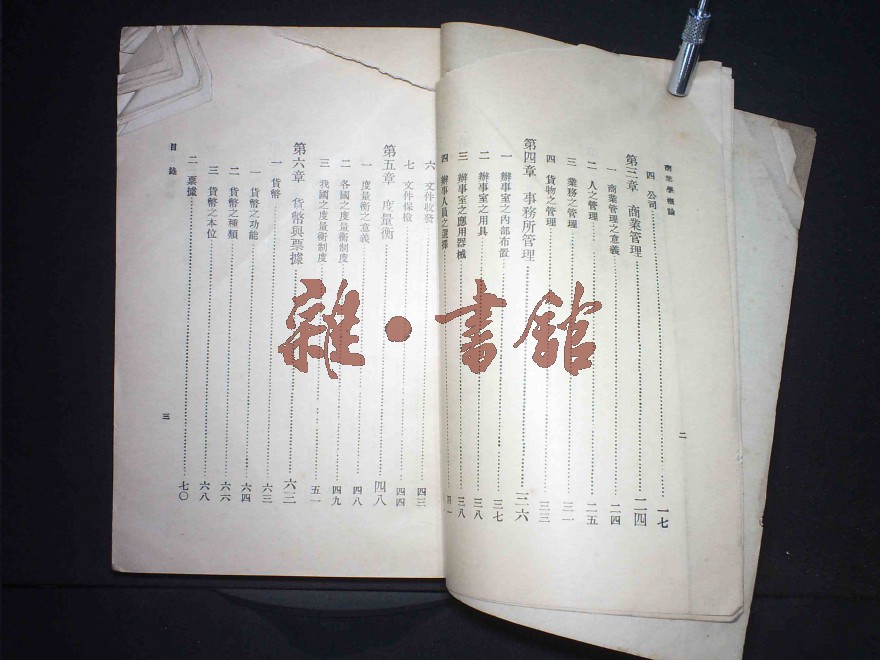 商業學概論
四 公司 一七
第三章 商業管理 二四
一 商業管理之意義 二四
二 人之管理 二五
三 業務之管理 三一
四 貨物之管理 三三
第四章 事務所管理 三六
一 辦事室之內部布置 三七
二 辦事室之用具 三八
三 辦事室之應用器械 三八
四 辦事人員之選擇
二
六 文件收發 四三
七 文件保檢 四四
第五章 度量衡 四八
一 度量衡之意義 四八
二 各國之度量衡制度 四九
三 我國之度量衡制度 五一
第六章 貨幣與票據 六三
一 貨幣 六三
一 貨幣之功能 六四
二 貨幣之種類 六六
三 貨幣之本位 六八
二 票據 七〇
目錄
三
雜・書館